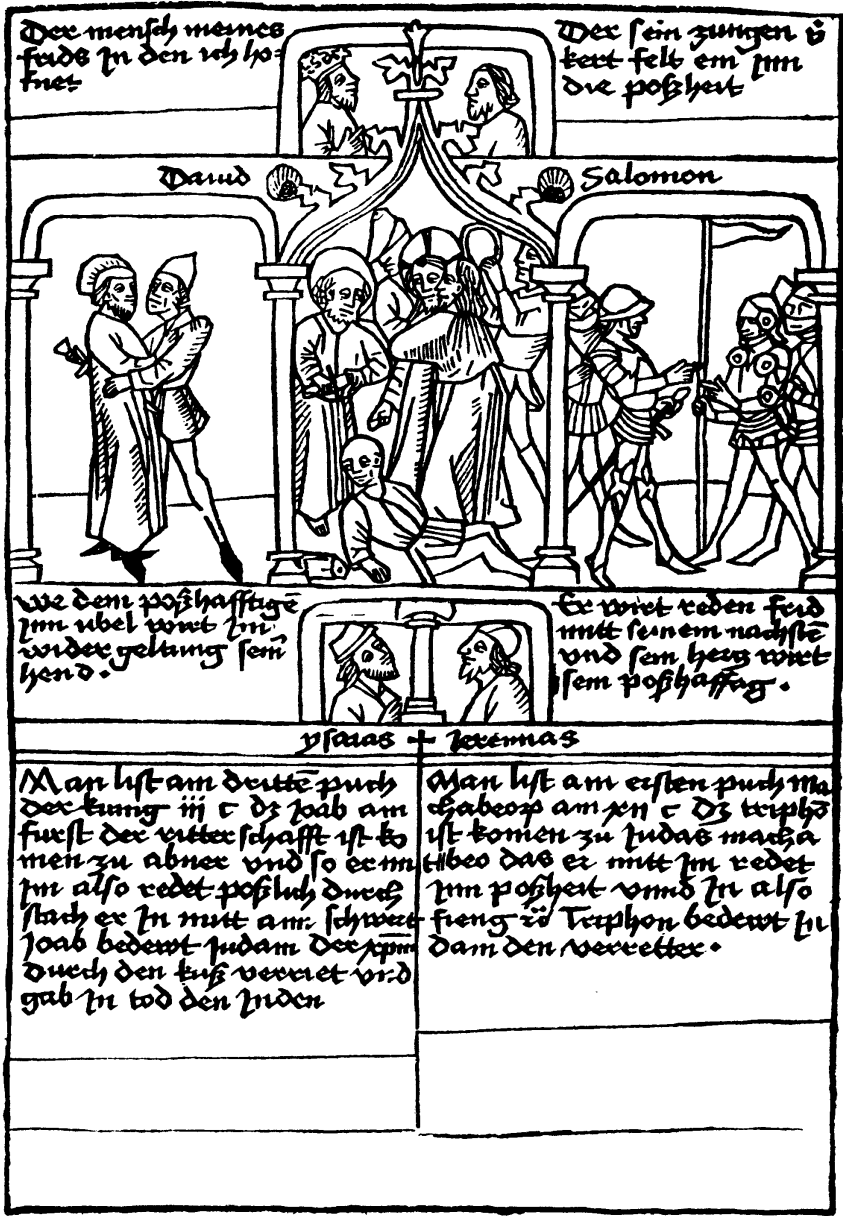 Der mensch meines
frids In den ich ho-
fnet
Der sein zungen v̈
kert felt em Inn
die poßheit
Dauid
Salomon
We dem poßhafftigē
Inn ubel wirt Im
widergeltung sein̄
hend .
Er wirt reden frid
mitt seinem nachstē
vnd sein hertz wirt
sein poßhafftag .
ysaias + Jeremias
Man list am drittē puch
der kung iij c dz Joab am
furst der ritterschafft ist ko
men zu abner vnd so er mit
Im also redet poßlich durch
stach er In mitt am schwert
Joab bedewt Judam der xp̄m
durch den kuß verriet vnd
gab In tod den Juden
Man list am ersten puch Ma
chabeorꝝ am xii c Dz triphō
ist komen zu Judas macha
beo das er mitt Im redet
Inn poßheit vnnd In also
fieng Triphon bedewt In
dam den verretter .